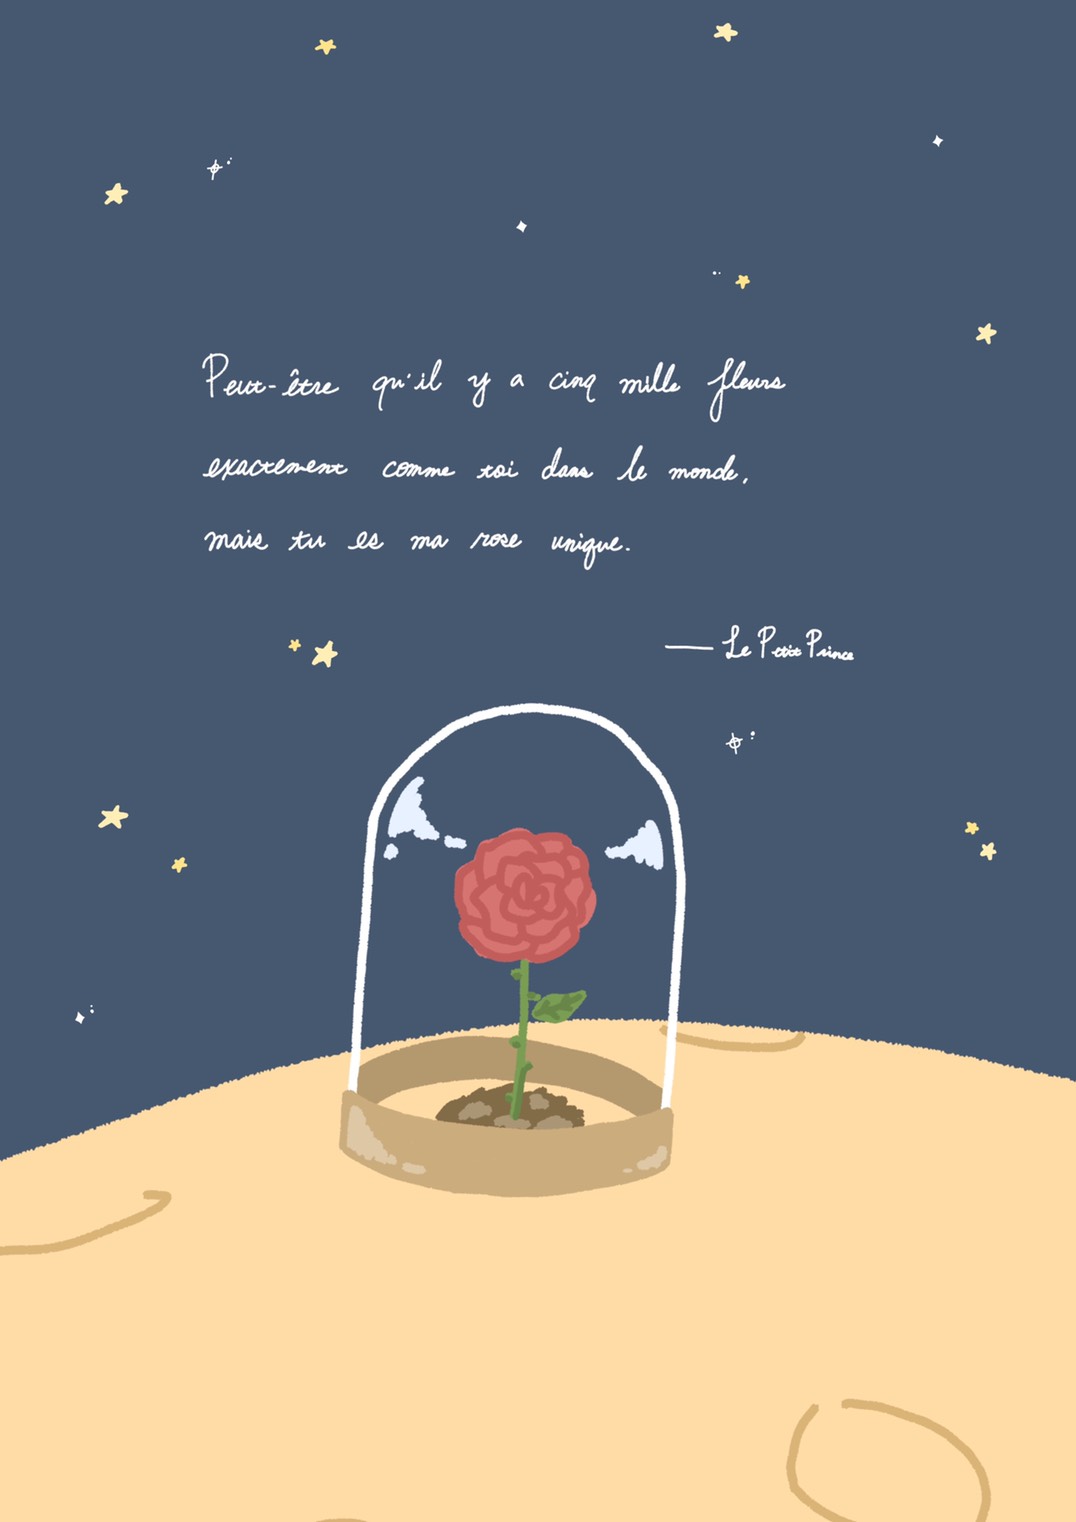 Peut-être qu'il y a cinq mille fleurs
exactement comme toi dans le monde,
mais tu es ma rose unique.
— Le Petit Prince